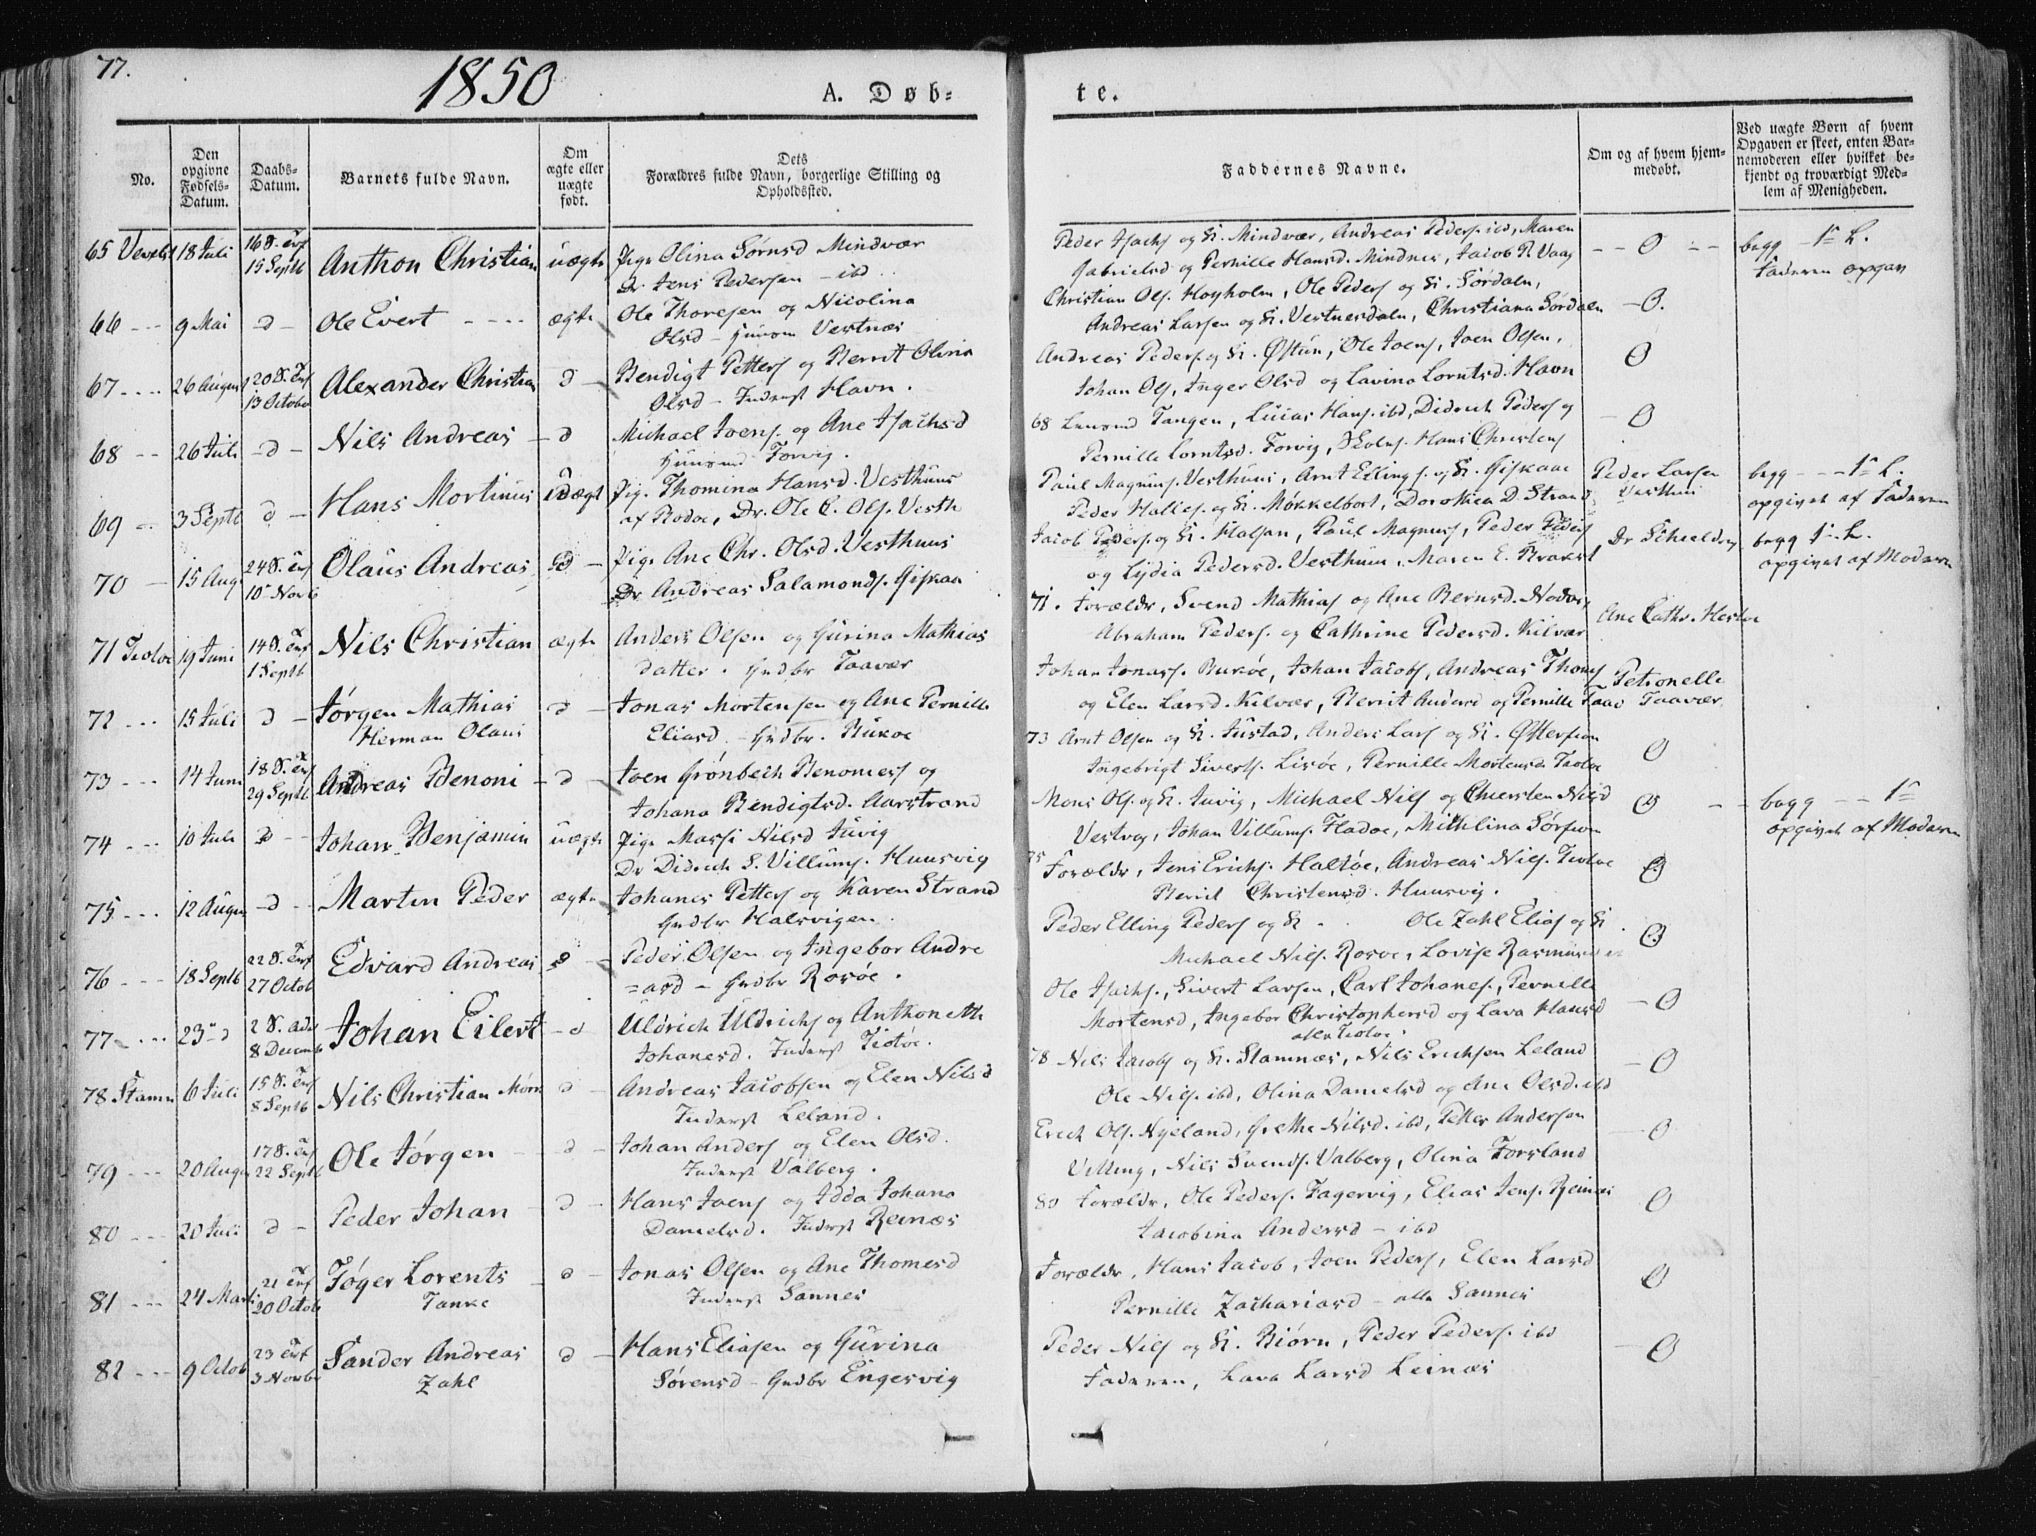 77.
1850
A. Døb-
te.
No.
Den opgivne Fødsels-Datum.
Daabs-Datum.
Barnets fulde Navn.
Om ægte eller uægte født.
Dets Forældres fulde Navn, borgerlige Stilling og Opholdssted.
Faddernes Navne.
Om og af hvem hjemmedøbt.
Ved uægte Børn af hvem Opgaven er skeet, enten Barnemoderen eller hvilket bekjendt og troværdigt Medlem af Menigheden.
65 18 Juli 15 Septb Anthon Christian uægte Pige Olina Sørnsd Mindvær
Dr. Jens Pedersen – ibd
66 --- 9 Mai -d- Ole Evert ---- ægte Ole Thoresen og Nicolina
Olsd – Vestnæs
67 .... 26 August 13 Octobr Alexander Christian d – Bendigt Petters og Berrit Olina
Olsd – Inderst Havn.
68 -- 26 Juli -d- Nils Andreas – d Michael Joens. og Ane Isachsd
Forvig.
69 -- 3 Septb d – Hans Mortinus uægt Pige Thomina Hansd. Vesthuus
af Rodøe, Dr. Ole C. Ols. Vesth
70 – 15 Aug 10 Novb Olaus Andreas d – Pige Ane Chr. Olsd. Vesthuus
Dr Andreas Salamonds. Giskaa
71 Tiotøe 19 Juni 1 Septb Nils Christian ægte Anders Olsen og Gurina Mathias
datter. Gudbr Taavær
72 --- 15 Juli d – Jørgen Mathias d – Jonas Mortensen og Ane Pernille
Herman Olaus Eliasd. – Gudbr. Bukøe
73 --- 14 Juni 29 Septb Andreas Benoni – d Joen Grønbech Benomers og
Johana Bendigtsd. Aarstrand
74 --- 10 Juli d – Johan Benjamin uægte Pige Massi Nilsd Juvig
Dr Didrich S. Villums. Huusvig
75 --- 12 August -d- Marten Peder ægte Johanes Petters og Karen Strand
Gudbr Halsvigen.
76 --- 18 Septb 27 Octob Edvard Andreas d – Peder Olsen og Ingebor Andre
=asd – Gudbr Rosøe.
77 --- 23 d 8 Decemb Johan Eilert – d Uldrich Uldrichs og Anthonette
Johanesd. Inderst Tiotøe.
78 Stamn 6 Juli 8 Septb Nils Christian Mørk d – Andreas Jacobsen og Elen Nilsd
Inderst Leland.
79 --- 20 August 22 Septb Ole Jørgen – d – Johan Anders og Elen Olsd.
Inderst Valberg.
80 --- 20 Juli d – Peder Johan – d – Hans Joens og Idda Johana
Danielsd. Inderst Reinæs
81 --- 24 Marti 20 Octob Tøger Lorents – d – Jonas Olsen og Ane Thomesd
Tanke Inderst Sannes
82 --- 9 Octob 3 Novbr Sander Andreas d – Hans Eliasen og Gurina
Zahl Sørensd – Gudbr Engesvig
Peder Isachs og K. Mindvær, Andreas Peders. ibd, Maren
Gabrielsd og Pernille Hansd. Mindnes, Jacob P. Vaag
-- O -- begg – 1ste L.
Faderen opgav
Christian Ols. Høyholm, Ole Peders og K. Sørdaln,
Andreas Larsen og K. Vestnesdaln, Christiana Sørdaln – O.
Andreas Peders og K. Østun, Ole Joens, Joen Olsen,
Johan Ols, Inger Olsd og Lavina Lorntsd. Havn O
68 Tangen, Lucas Hans. ibd, Didrich Peders og
Pernille Lorntsd. Forvig, Hans Christens – O
Paul Magnus. Vesthuus, Arnt Ellings. og K. Giskaae
Peder Halles. og K. Mørkelbost, Dorothea D. Strand
Peder Larsen Vesthuus begg --- 1ste L.
opgivet af Faderen
Jacob Peders. og K. Halsan, Paul Magnus, Peder Peders
og Lydia Pedersd. Vesthuus, Maren E. Brækst
begg 1ste L.
opgivet af Moderen
71. Forældr, Svend Mathias og Ane Bernsd.
Abraham Peders. og Cathrine Pedersd. Kilvær Ane Cathr. Hestøe
Johan Jonas. Bukøe, Johan Jacobs, Andreas Thomes
og Elen Larsd. Kilvær, Berrit Andersd og Pernille Taav Petronelle Taavær
73 Arnt Olsen og K. Justad, Anders Lars og K.
Ingebrigt Siverts. Lisøe, Pernille Mortensd. Tiotøe O
Mons Ols. og K. Juvig, Michael Nils og Chiersten Nilsd
Vestveg, Johan Villums. Fladøe, Mithlina O -- begg -- 1ste
opgivet af Moderen
75 Forældr, Jens Erichs. Haltøe, Andreas Nils. Tiotøe
Berrit Christensd. Huusvig. O
Peder Elling Peders og K – Ole Zahl Elias og K.
Michael Nils. Rosøe, Lovise Rasmusd O
Ole Isachs., Sivert Larsen, Carl Johanes, Pernille
Mortensd, Ingebor Christophersd og Lava Hansd
alle Tiotøe. – O
78 Nils Jacobs og K. Stamnæs, Nils Erichsen Leland
Ole Nils. ibd, Olina Danielsd og Ane Olsd. ibd – O
Erich Ols. Nyeland, Grethe Nilsd. ibd, Petter Andersen
Velling, Nils Svends. Valberg, Olina Forsland – O
80 Forældr, Ole Peders. Fagervig, Elias Jens. Reinæs
Jacobina Andersd – ibd O
Forældr, Hans Jacob, Joen Peders, Elen Larsd
Pernille Zachariasd – alle Sannes O
Peder Nils og K. Biørn, Peder Peders. ibd
Faderen, Lava Larsd Leinæs – O